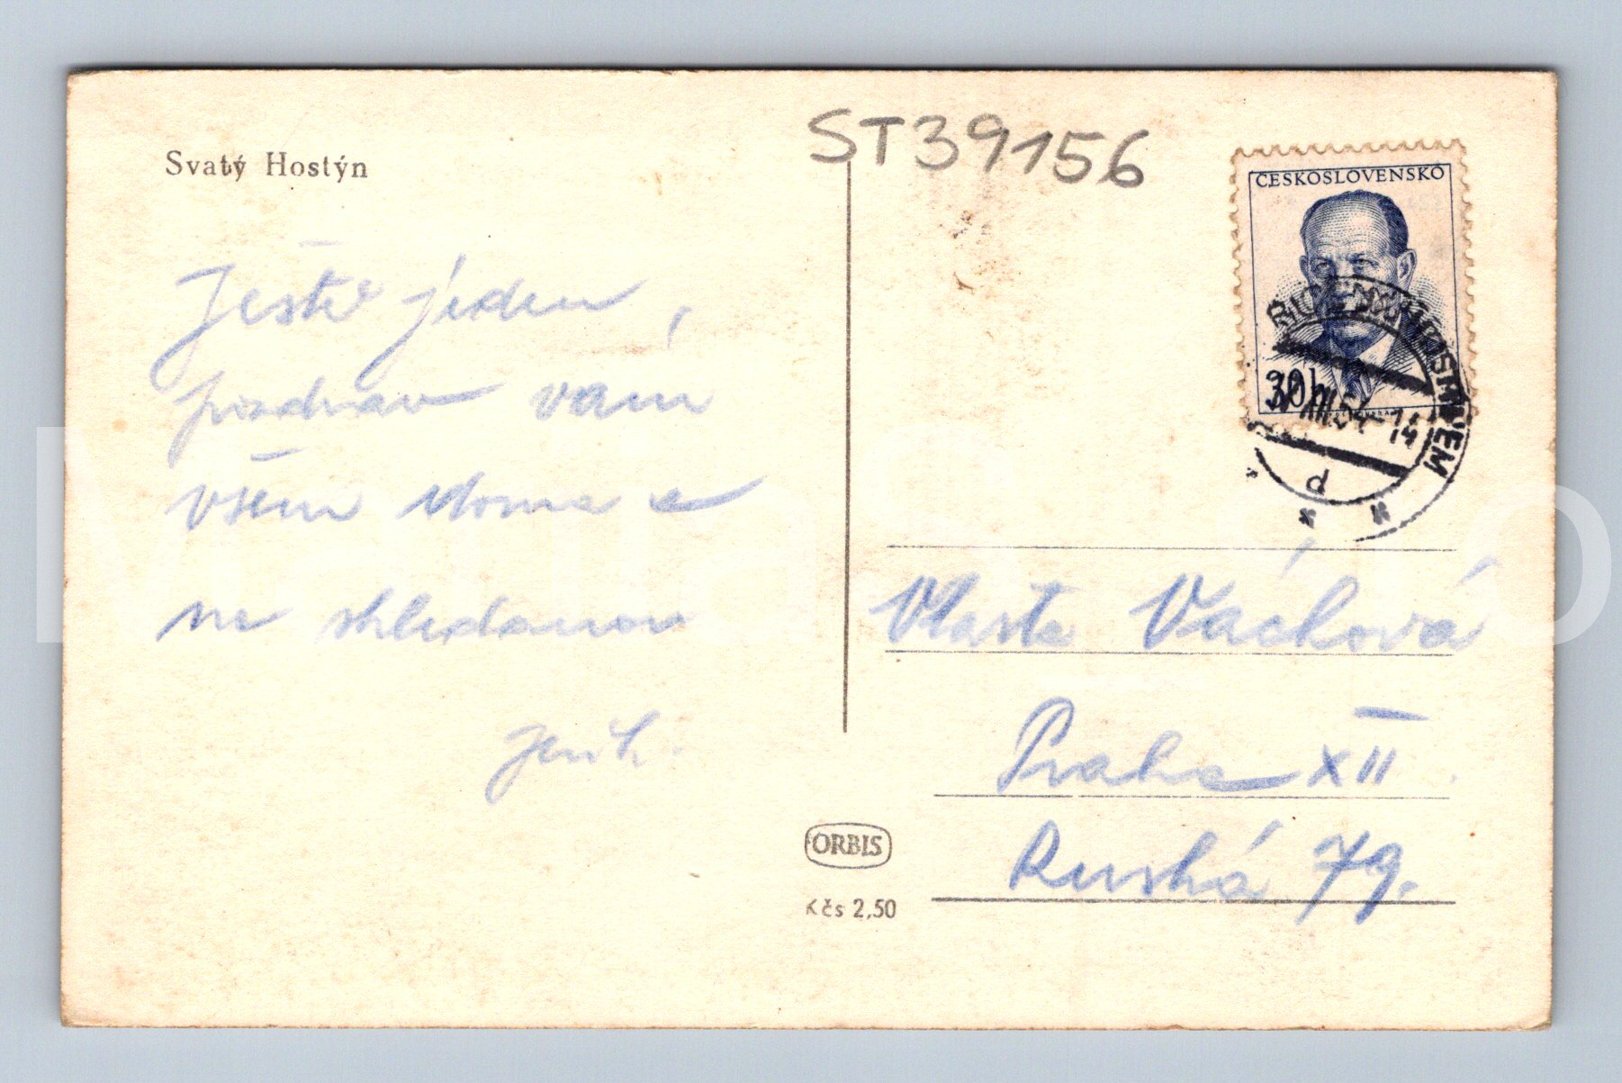 Svatý Hostýn
ST39156
ČESKOSLOVENSKO
30h
Ještě jeden
pozdrav vám
všem doma a
na shledanou
Vlasta Váchová
Praha XII
Ruská 79.
ORBIS
Kčs 2,50